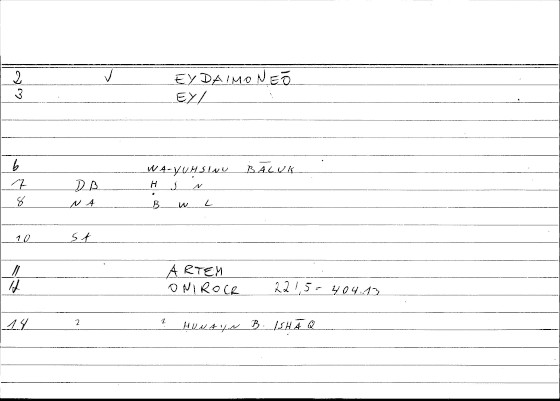 2 √ EYDAIMONEŌ
3 EY/
6 WA-YUHSINU BĀLUK
7 DB Ḥ S N
8 NA B W L
10 St
11 ARTEM
12 ONIROCR 221,5 - 404.13
14 ? ? HUNAYN B. ISHĀQ